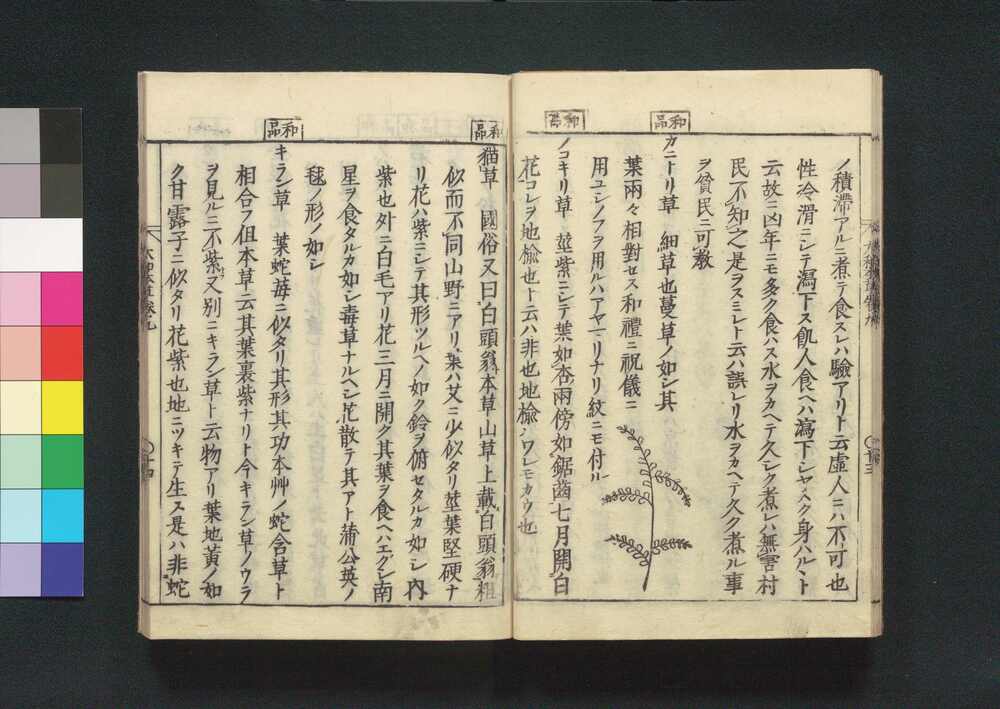 ノ積滞アルニ煮テ食スレハ驗アリト云虚人ニハ不可也
性冷滑ニシテ瀉下ス飢人食ヘハ瀉下シヤスク身ハルヽト
云故ニ凶年ニモ多ク食ハス水ヲカヘテ久シク煮レハ無害村
民不知之是ヲスミレト云ハ誤レリ水ヲカヘテ久ク煮ル事
ヲ貧民ニ可教
和品
カニトリ草 細草也蔓草ノ如シ其
葉兩々相對セス和禮ニ祝儀ニ
用ユシノフヲ用ルハアヤマリナリ紋ニモ付ル
和品
ノコキリ草 莖紫ニシテ葉如杏兩傍如鋸齒七月開白
花コレヲ地楡也ト云ハ非也地楡ハワレモカウ也
大和本草卷九
〇十三
和品
猫草 國俗又曰白頭翁本草山草上載白頭翁粗
似而不同山野ニアリ葉ハ艾ニ少似タリ莖葉堅硬ナ
リ花ハ紫ニシテ其形ツルヘノ如ク鈴ヲ俯セタルカ如シ内
紫也外ニ白毛アリ花三月ニ開ク其葉ヲ食ヘハエグシ南
星ヲ食タルカ如シ毒草ナルヘシ花散テ其アト蒲公英ノ
毬ノ形ノ如シ
和品
キラン草 葉蛇苺ニ似タリ其形其功本艸ノ蛇含草ト
相合フ但本草云其葉裏紫ナリト今キラン草ノウラ
ヲ見ルニ不紫又別ニキラン草ト云物アリ葉地黄ノ如
ク甘露子ニ似タリ花紫也地ニツキテ生ス是ハ非蛇
大和本草卷九
〇十四